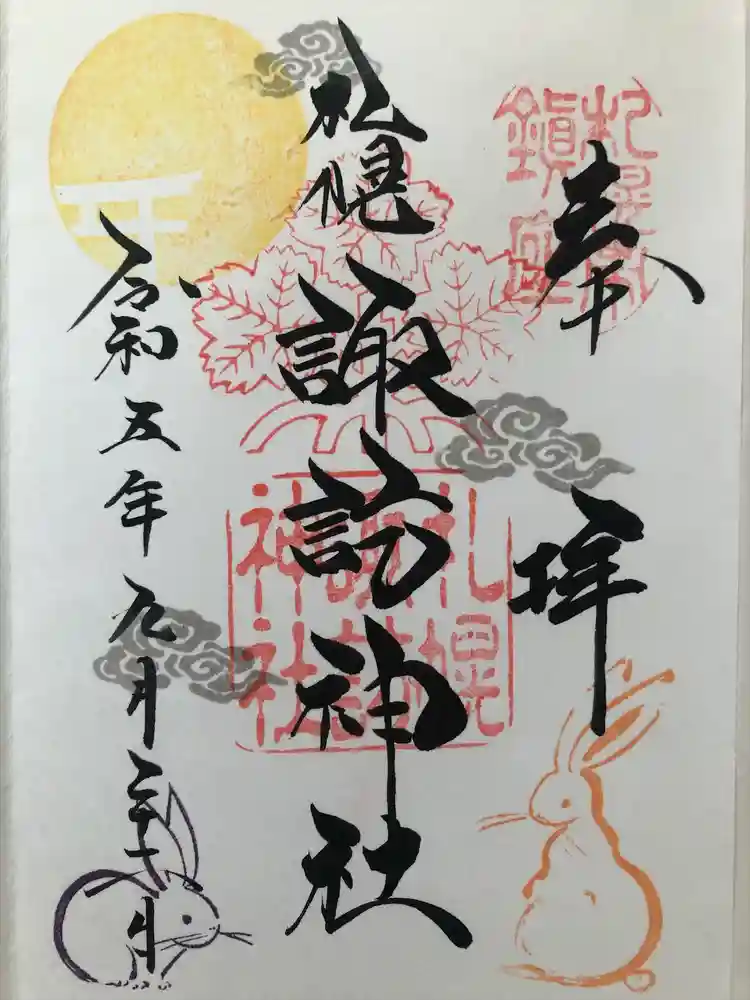 奉拝
鎮座
札幌諏訪神社
札幌
諏訪
神社
令和五年九月二十日